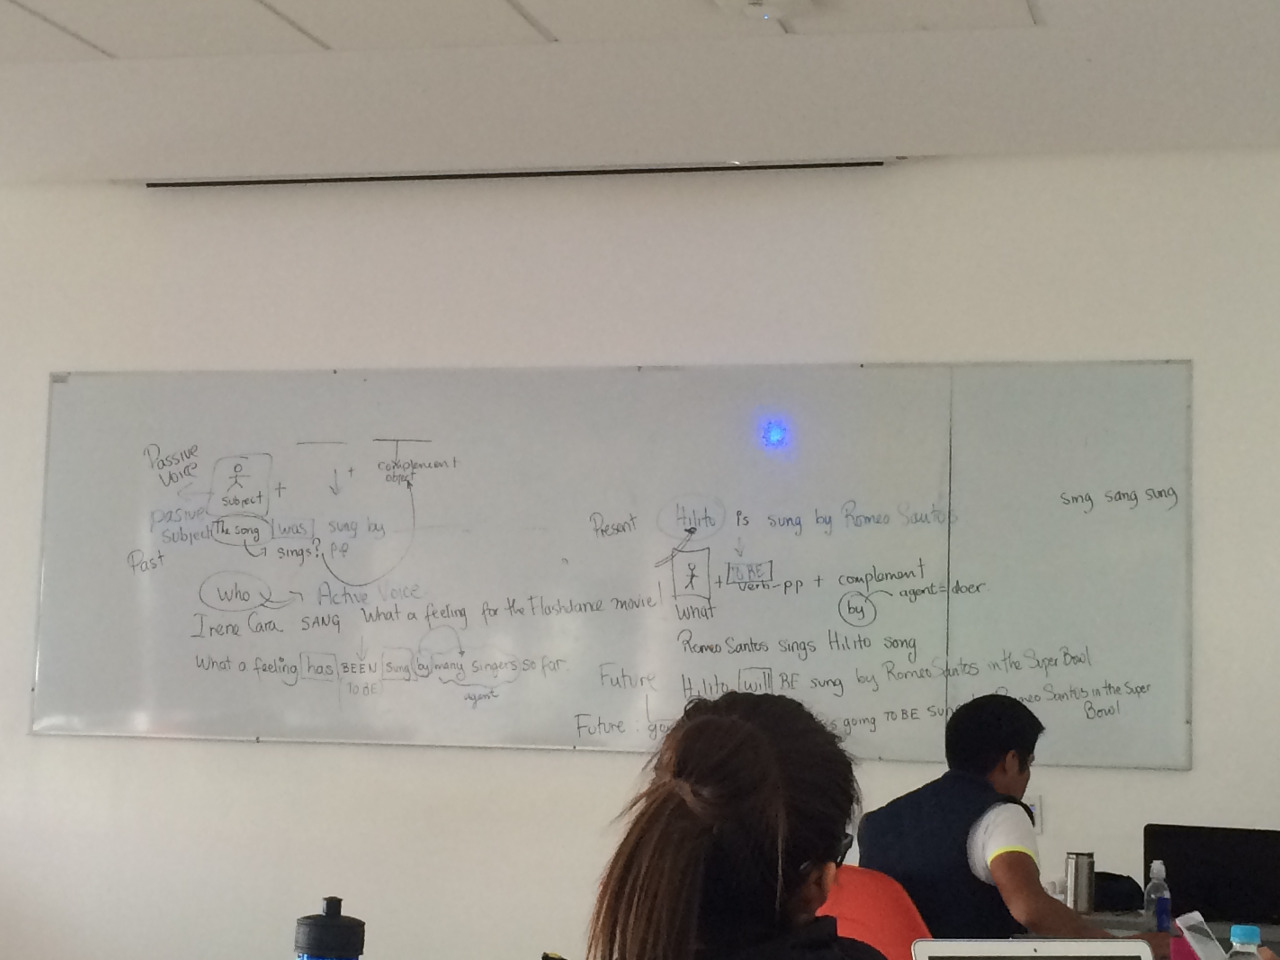 Passive
Voice
subject + + complement
object
pasive
subject The song was sung by
sings? pp
Past
Who Active Voice
Irene Cara SANG What a feeling for the Flashdance movie!
What a feeling has BEEN sung by many singers so far
TO BE
agent
Present Hilito is sung by Romeo Santos
+ TO BE
verb-pp + complement
by agent=doer
What
Romeo Santos sings Hilito song
Future Hilito will BE sung by Romeo Santos in the Super Bowl
Future: is going TO BE Romeo Santos in the Super
Bowl
sing sang sung